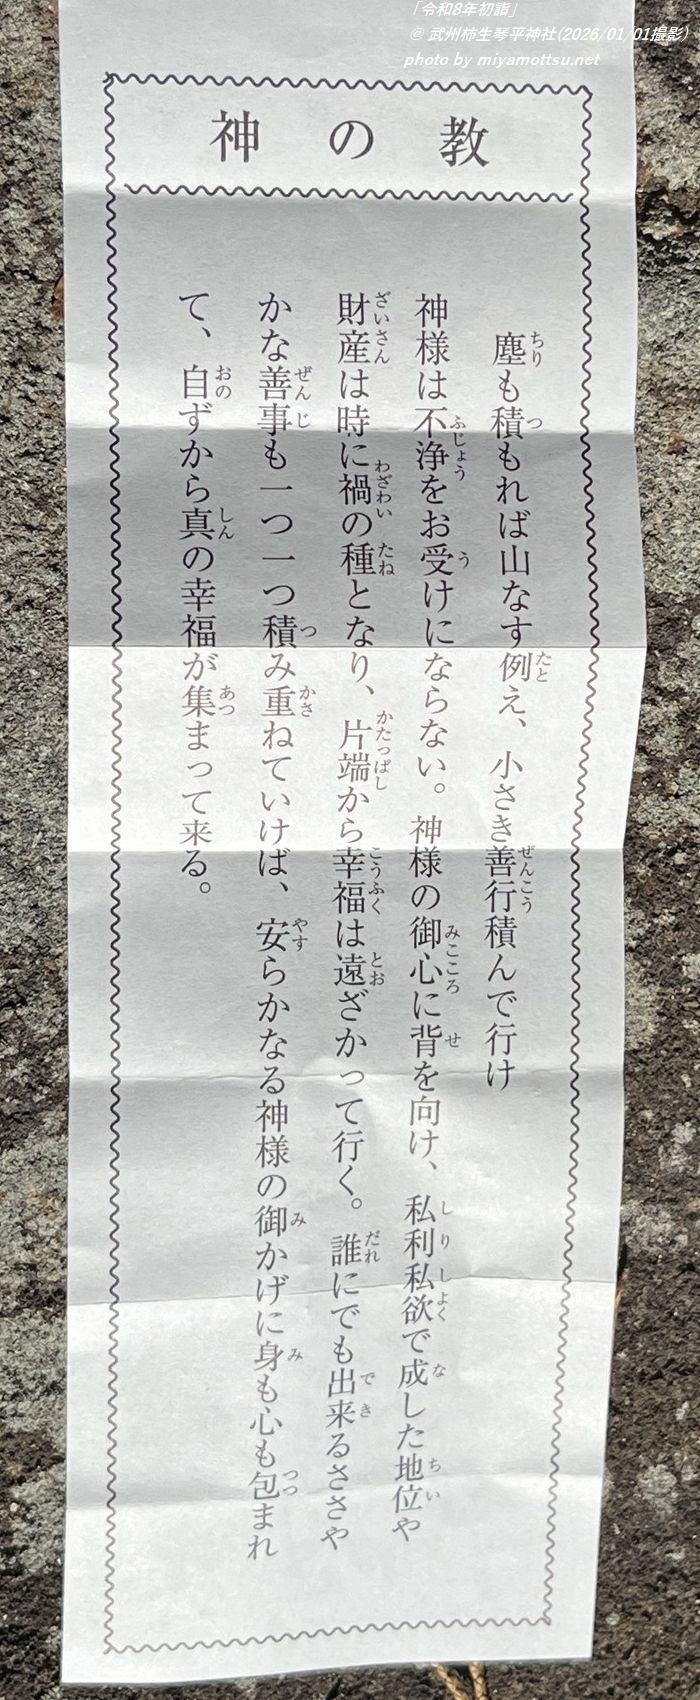 「令和8年初詣」
@ 武州柿生琴平神社(2026/01/01撮影)
photo by miyamottsu.net
神の教
塵も積もれば山なす例え、小さき善行積んで行け
神様は不浄をお受けにならない。神様の御心に背を向け、私利私欲で成した地位や
財産は時に禍の種となり、片端から幸福は遠ざかって行く。誰にでも出来るささや
かな善事も一つ一つ積み重ねていけば、安らかなる神様の御かげに身も心も包まれ
て、自ずから真の幸福が集まって来る。